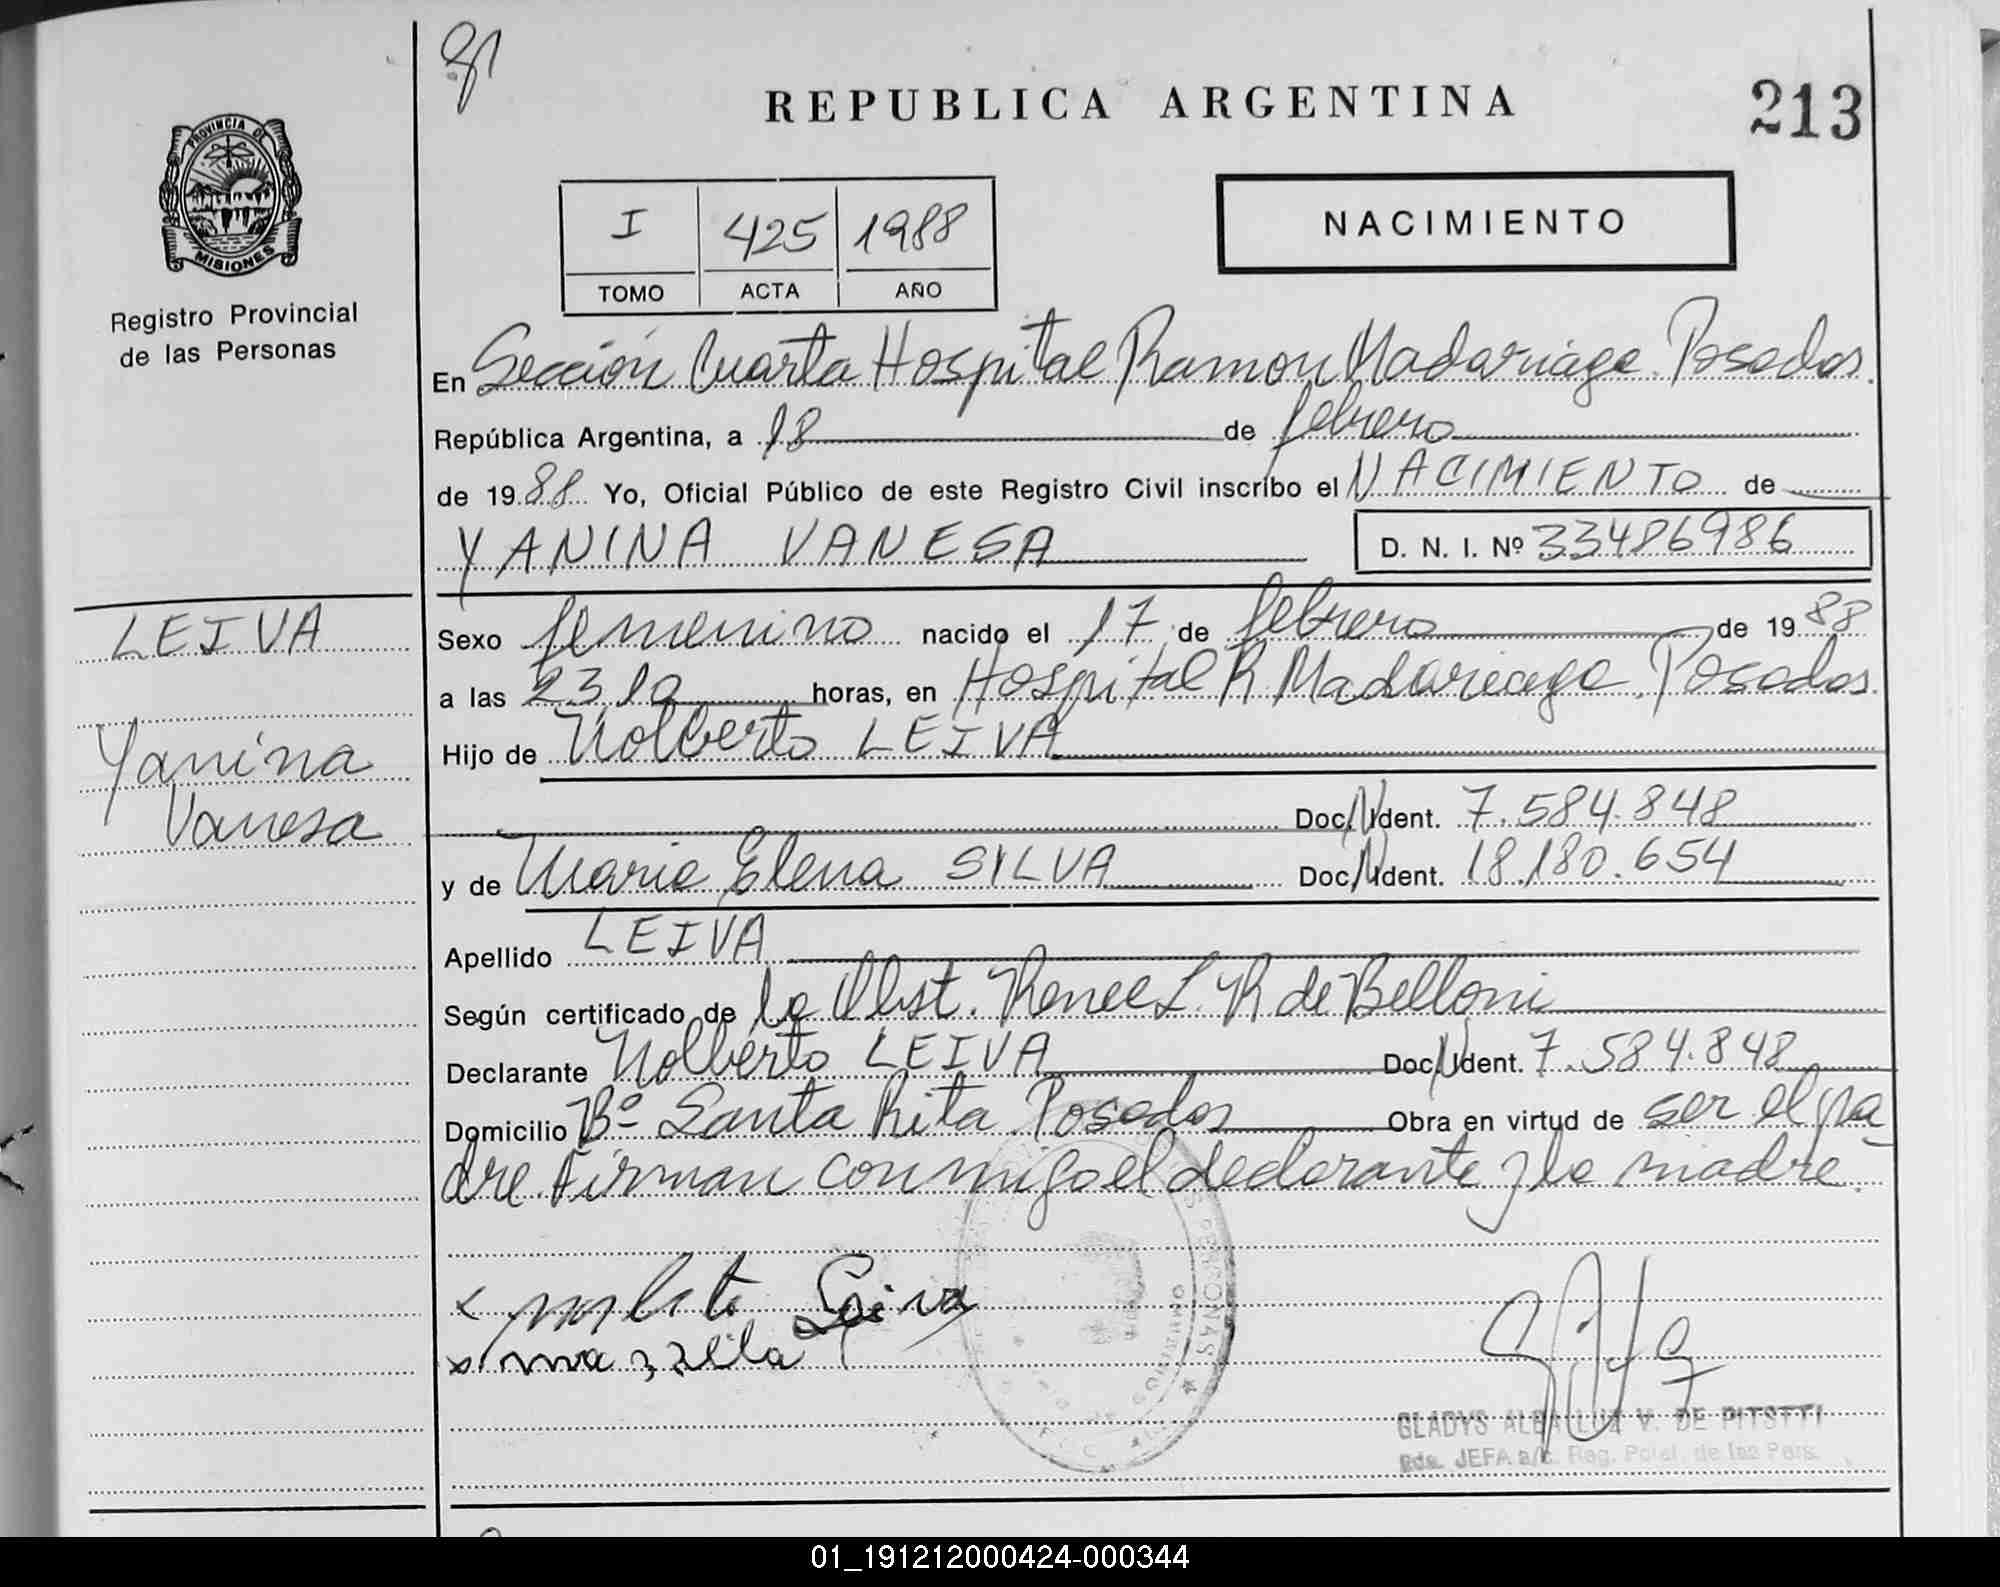 REPUBLICA ARGENTINA
213
PROVINCIA DE
MISIONES
Registro Provincial
de las Personas
I 425 1988
TOMO ACTA AÑO
NACIMIENTO
En Sección Cuarta Hospital Ramon Madariaga. Posadas.
República Argentina, a 18 de febrero
de 1988 Yo, Oficial Público de este Registro Civil inscribo el NACIMIENTO de
YANINA VANESA D. N. I. Nº 33486986
LEIVA
Yanina
Vanesa
Sexo femenino nacido el 17 de febrero de 1988
a las 23 10 horas, en Hospital R Madariaga. Posadas.
Hijo de Nolberto LEIVA
Doc. Ident. 7.584.848
y de Maria Elena SILVA Doc. Ident. 18.180.654
Apellido LEIVA
Según certificado de la Obst. Renee L. R de Belloni
Declarante Nolberto LEIVA Doc. Ident. 7.584.848
Domicilio Bº Santa Rita Posadas Obra en virtud de ser el pa
dre. Firman conmigo el declarante y la madre.
Leiva
PERSONAS
GLADYS ALBA LUZ V. DE
JEFA a/c. Reg. Pcial. de las Pers.
01_191212000424-000344